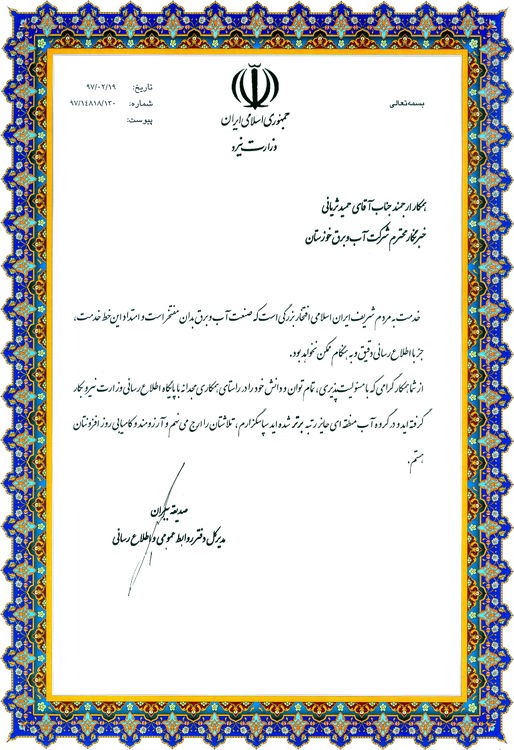 بسمه‌تعالی
جمهوری اسلامی ایران
وزارت نیرو
تاریخ: ۹۷/۰۲/۱۹
شماره: ۹۷/۱۴۸۱۸/۱۳۰
پیوست:
همکار ارجمند جناب آقای حمید ثریائی
خبرنگار محترم شرکت آب و برق خوزستان
خدمت به مردم شریف ایران اسلامی افتخار بزرگی است که صنعت آب و برق بدان مفتخر است و امتداد این خط خدمت،
جز با اطلاع رسانی دقیق و به هنگام ممکن نخواهد بود.
از شما همکار گرامی که با مسئولیت پذیری، تمام توان و دانش خود را در راستای همکاری مجدانه با پایگاه اطلاع رسانی وزارت نیرو بکار
گرفته اید و در گروه آب منطقه ای حائز رتبه برتر شده اید سپاسگزارم، تلاشتان را ارج می نهم و آرزومند کامیابی روز افزونتان
هستم.
صدیقه ببران
مدیرکل دفتر روابط عمومی و اطلاع رسانی